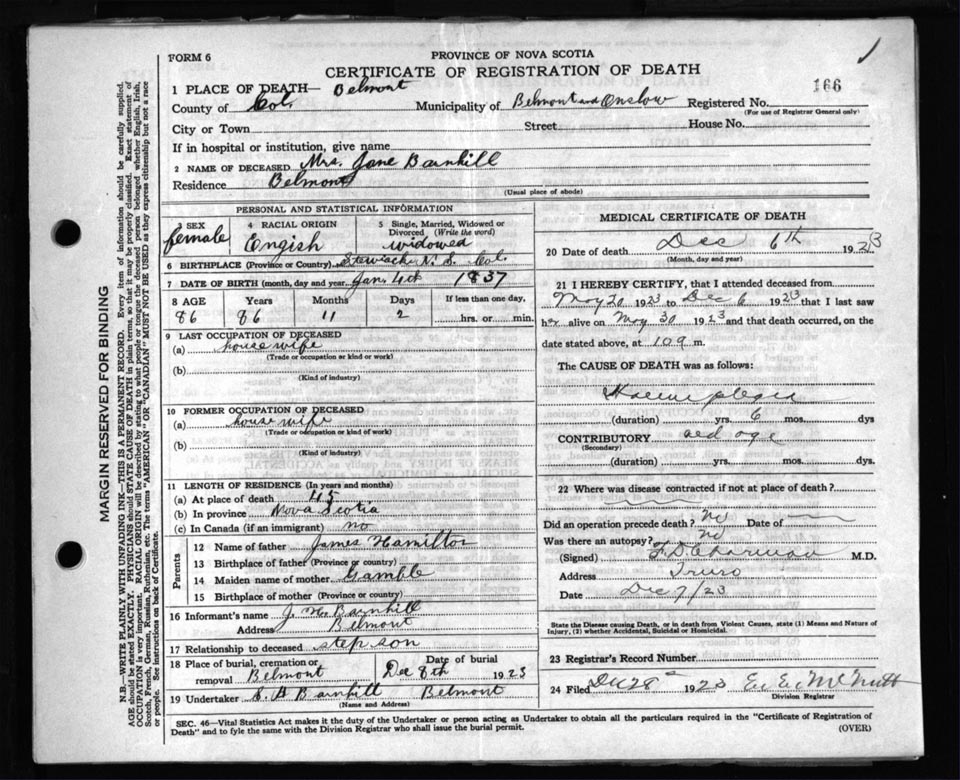 FORM 6
PROVINCE OF NOVA SCOTIA
CERTIFICATE OF REGISTRATION OF DEATH
166
1 PLACE OF DEATH— Belmont
County of Col. Municipality of Belmont and Onslow Registered No.
(For use of Registrar General only)
City or Town Street House No.
If in hospital or institution, give name
2 NAME OF DECEASED Mrs. Jane Barnhill
Residence Belmont
(Usual place of abode)
PERSONAL AND STATISTICAL INFORMATION
3 SEX 4 RACIAL ORIGIN 5 Single, Married, Widowed or Divorced (Write the word)
female Engish widowed
6 BIRTHPLACE (Province or Country) Stewiack N. S. Col.
7 DATE OF BIRTH (month, day and year) Jan 4th 1837
8 AGE Years Months Days If less than one day,
86 86 11 2 hrs. or min.
9 LAST OCCUPATION OF DECEASED
(a) house wife
(Trade or occupation or kind or work)
(b)
(Kind of industry)
10 FORMER OCCUPATION OF DECEASED
(a) house wife
(Trade or occupation or kind of work)
(b)
(Kind of industry)
11 LENGTH OF RESIDENCE (In years and months)
(a) At place of death 45
(b) In province Nova Scotia
(c) In Canada (if an immigrant) no
Parents
12 Name of father James Hamilton
13 Birthplace of father (Province or country)
14 Maiden name of mother Gamble
15 Birthplace of mother (Province or country)
16 Informant's name J H Barnhill
Address Belmont
17 Relationship to deceased step son
18 Place of burial, cremation or removal Belmont Date of burial Dec 8th 1923
19 Undertaker Barnhill Belmont
(Name and Address)
MEDICAL CERTIFICATE OF DEATH
20 Date of death Dec 6th 1923
(Month, day and year)
21 I HEREBY CERTIFY, that I attended deceased from
May 20 1923 to Dec 6 1923 that I last saw
her alive on May 30 1923 and that death occurred, on
date stated above, at 109 m.
The CAUSE OF DEATH was as follows:
(duration) yrs. 6 mos. dys
CONTRIBUTORY old age
(Secondary)
(duration) yrs. mos. dys.
22 Where was disease contracted if not at place of death?
Did an operation precede death? No Date of
Was there an autopsy? No
(Signed) M.D.
Address Truro
Date Dec 7/23
State the Disease causing Death, or in death from Violent Causes, state (1) Means and Nature of
Injury, (2) whether Accidental, Suicidal or Homicidal.
23 Registrar's Record Number
24 Filed Dec 28 1923 E. E. McNutt
Division Registrar
SEC. 46—Vital Statistics Act makes it the duty of the Undertaker or person acting as Undertaker to obtain all the particulars required in the "Certificate of Registration of
Death" and to fyle the same with the Division Registrar who shall issue the burial permit. (OVER)
MARGIN RESERVED FOR BINDING
N.B.—WRITE PLAINLY WITH UNFADING INK—THIS IS A PERMANENT RECORD. Every item of information should be carefully supplied.
AGE should be stated EXACTLY. PHYSICIANS should STATE CAUSE OF DEATH in plain terms, so that it may be properly classified. Exact statement of
OCCUPATION is very important. RACIAL ORIGIN will be described by stating to what people or tongue the deceased person belonged whether English, Irish,
Scotch, French, German, Russian, Ruthenian, etc. The terms "AMERICAN" OR "CANADIAN" MUST NOT BE USED as they express citizenship but not a race
or people. See instructions on back of Certificate.